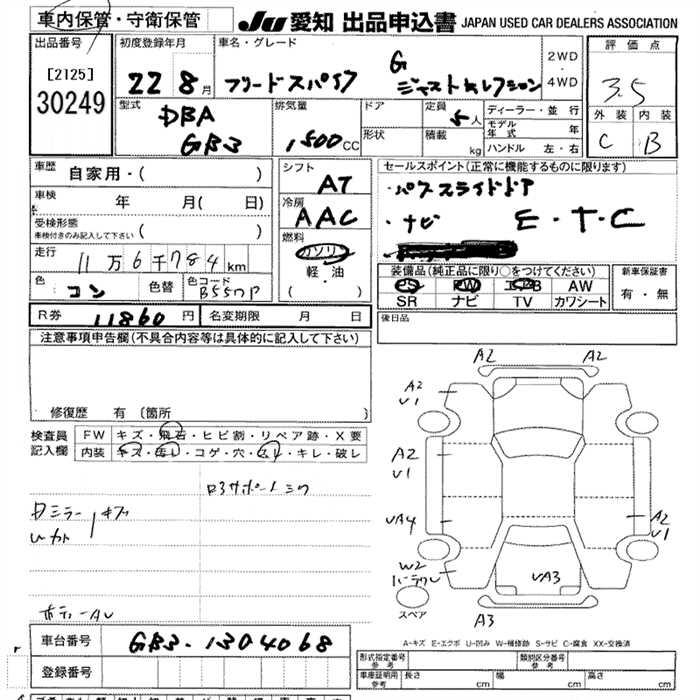 車内保管・守衛保管
JU 愛知 出品申込書 JAPAN USED CAR DEALERS ASSOCIATION
出品番号
[2125]
30249
初度登録年月
22 8月
車名・グレード
フリードスパイク G ジャストセレクション
2WD
4WD
評価点
3.5
外装 内装
C B
型式
DBA
GB3
排気量
1500CC
ドア
形状
定員
5人
積載
kg
ディーラー・並行
モデル年式 年
ハンドル 左・右
車歴
自家用・( )
車検
年 月( 日)
受検形態
車検付きのみ記入して下さい
( )
走行
11万6千784km
色
コン
色替
色コード
B557P
シフト
AT
冷房
AAC
燃料
ガソリン
軽・油
( )
セールスポイント(正常に機能するものに限ります)
・パワースライドドア
・ナビ E・T・C
装備品(純正品に限り○をつけてください)
PS PW エアB AW
SR ナビ TV カワシート
新車保証書
有・無
R券 11860円
名変期限 月 日
後日品
注意事項申告欄(不具合内容等は具体的に記入して下さい)
修復歴 有〔箇所 〕
検査員
記入欄
FW キズ・飛石・ヒビ割・リペア跡・X要
内装 キズ・汚レ・コゲ・穴・スレ・キレ・破レ
ミラー キズ
A2 A2
A2
U1
A2
U1
UA4
A2
U1
W2
UA3
スペア
A3
A-キズ E-エクボ U-凹み W-補修跡 S-サビ C-腐食 XX-交換済
車台番号
GB3-1304068
登録番号
形式指定番号
参考
類別区分番号
参考
車庫証明用
参考
長さ cm
幅 cm
高さ cm